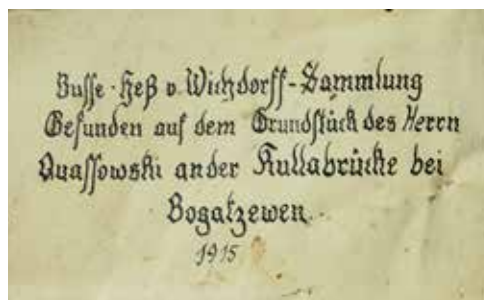 Busse · Heß v. Wichdorff-Sammlung
Gefunden auf dem Grundstück des Herrn
Quassowski an der Kullabrücke bei
Bogatzewen.
1915